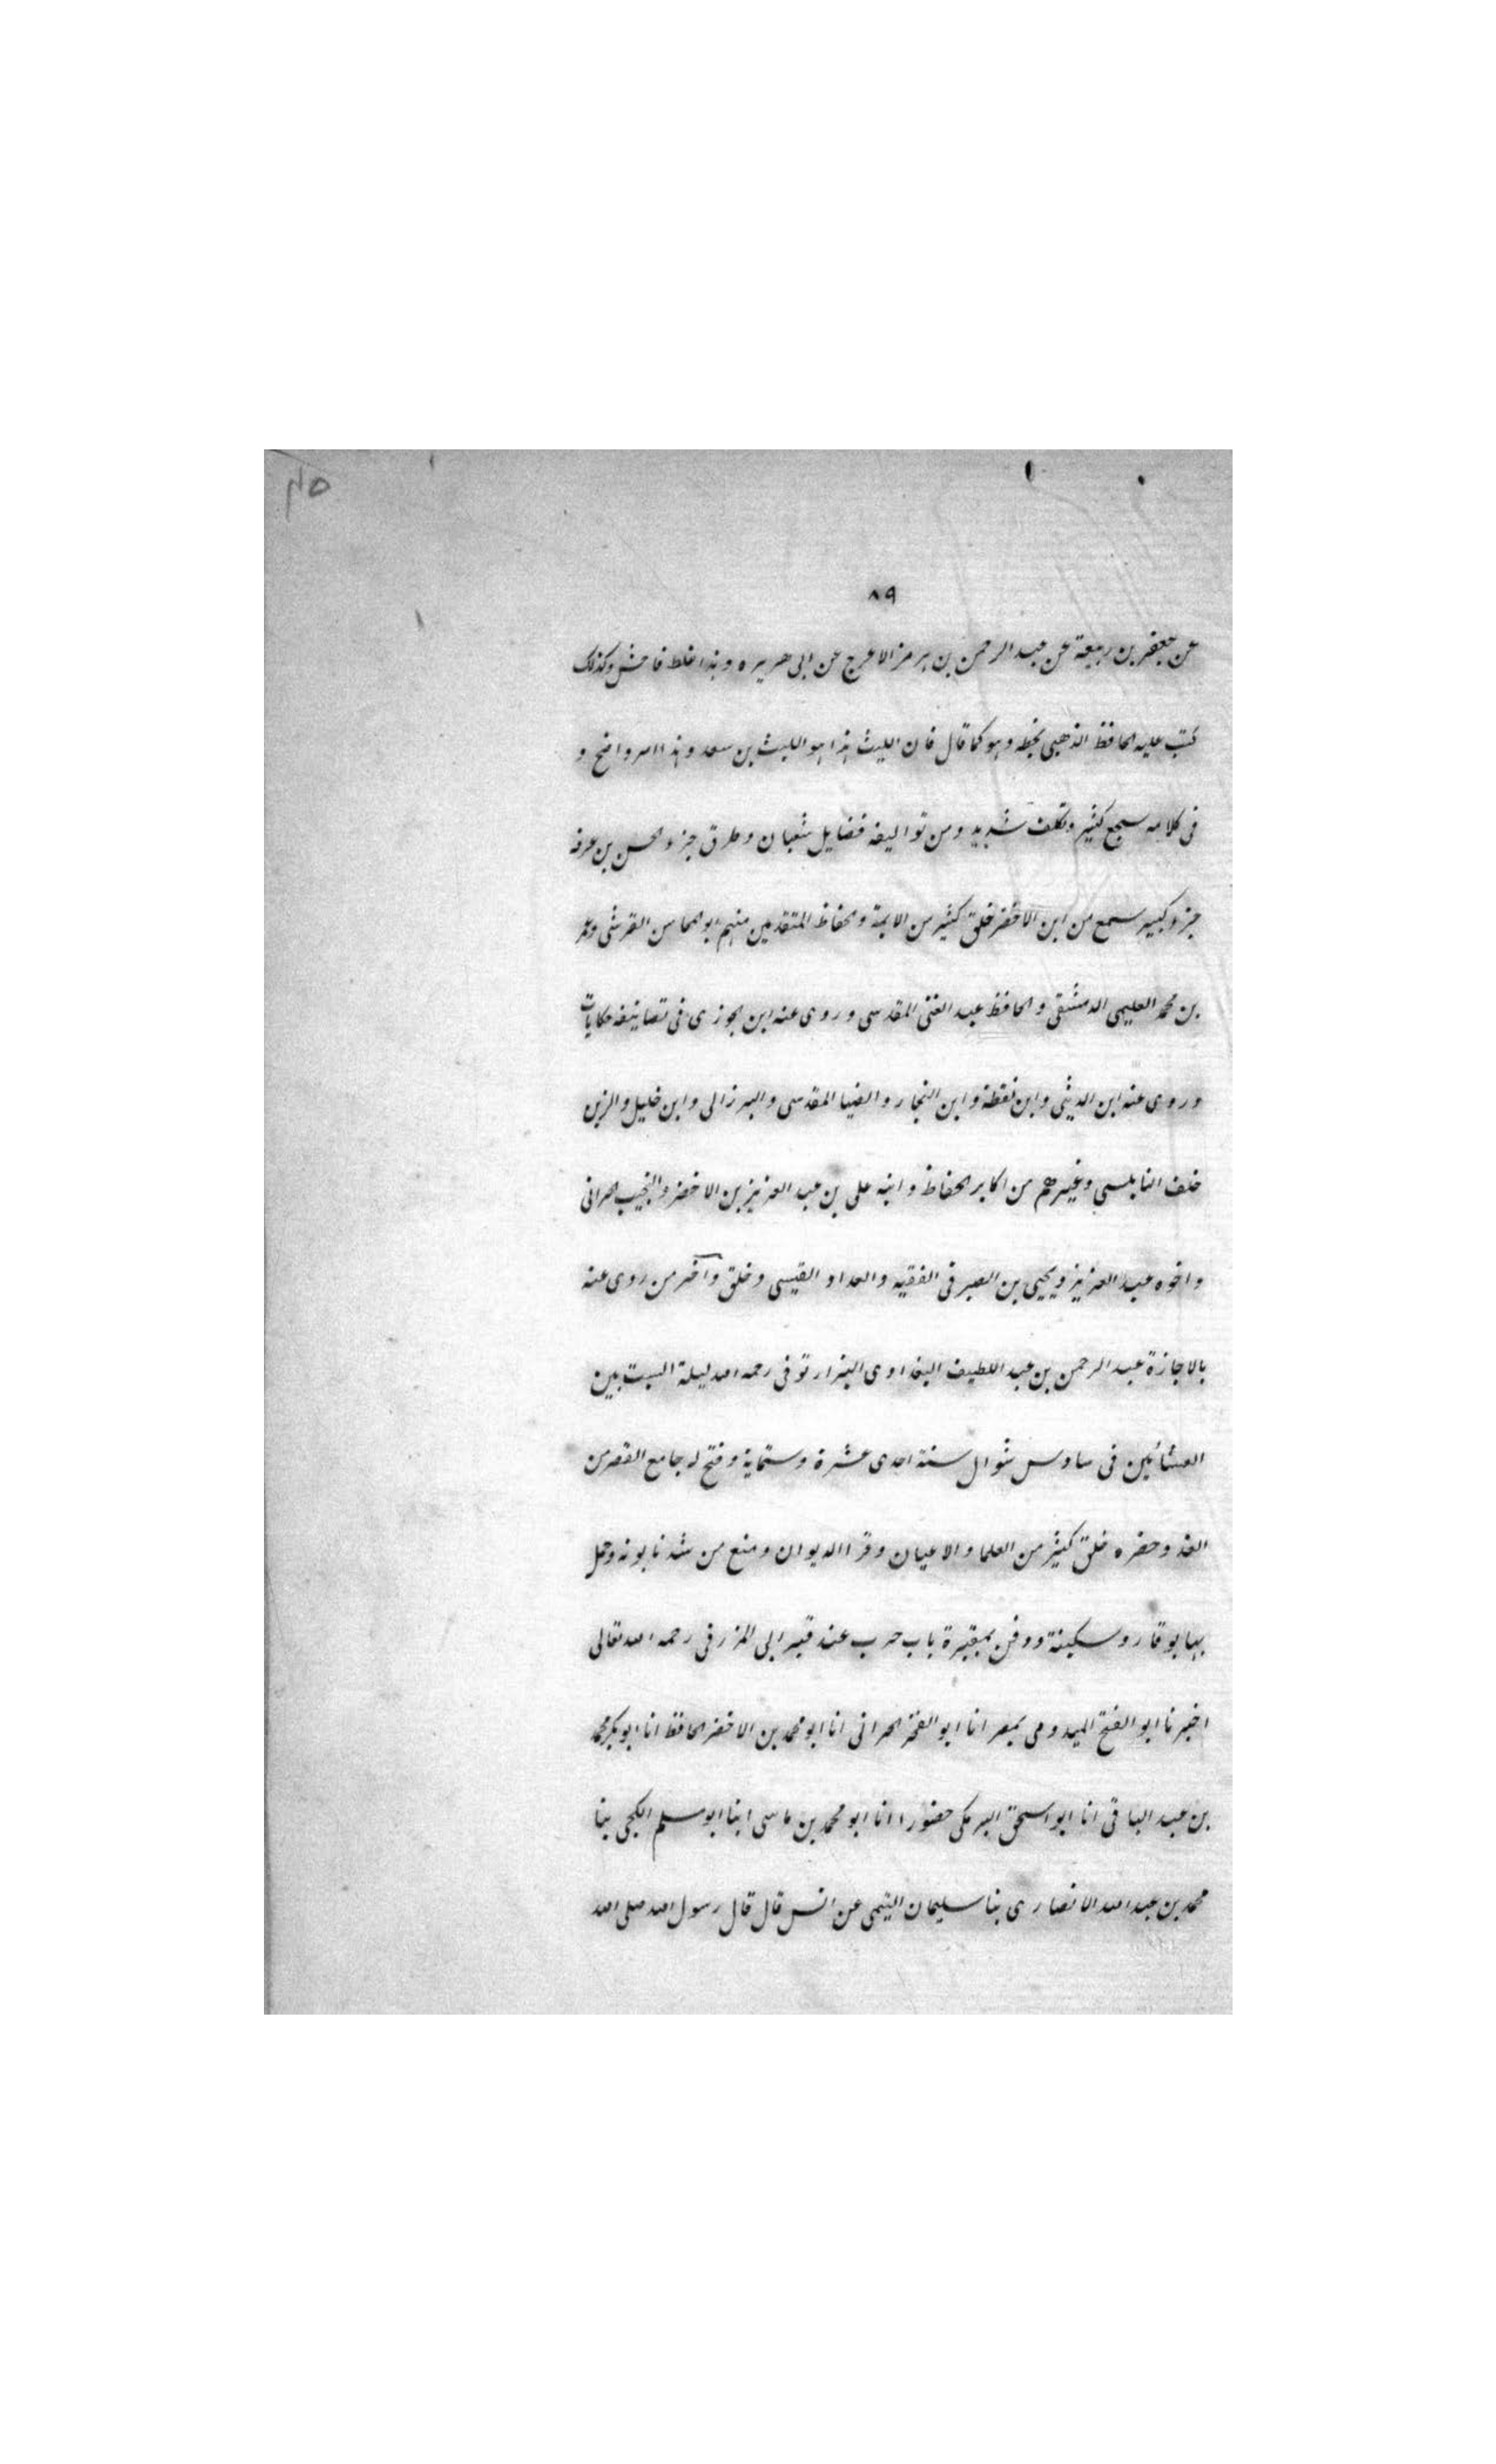 ٨٩
عن جعفر بن ربيعة عن عبد الرحمن بن هرمز الاعرج عن ابى هريره وهذا غلط فاحش وكذلك
كتب عليه الحافظ الذهبى بخطه وهو كما قال فان الليث هذا هو الليث بن سعد وهذا امر واضح و
فى كلامه سجع كثير وتكلف شديد ومن تواليفه فضايل شعبان وطرق جزء الحسن بن عرفه
جزء كبير سمع من ابن الاخضر خلق كثير من الايمة والحفاظ المتقدمين منهم ابو المحاسن القرشى وعمر
بن محمد العليمى الدمشقى والحافظ عبد الغنى المقدسى وروى عنه ابن الجوزى فى تصانيفه حكايات
وروى عنه ابن الدبيثى وابن نقطة وابن النجار والضيا المقدسى والبرزالى وابن خليل والزين
خلف النابلسى وغيرهم من اكابر الحفاظ وابنه على بن عبد العزيز بن الاخضر والنجيب الحرانى
واخوه عبد العزيز ويحيى بن الصيرفى الفقيه والمقداد القيسى وخلق وآخر من روى عنه
بالاجازة عبد الرحمن بن عبد اللطيف البغدادى البزار توفى رحمه الله ليلة السبت بين
العشائين فى سادس شوال سنة احدى عشرة وستماية وفتح له جامع القصر من
الغد وحضره خلق كثير من العلما والاعيان وقرا الديوان ومنع من شد تابوته وحمل
بهابو قار وسكينة ودفن بمقبرة باب حرب عند قبر ابى المزرفى رحمه الله تعالى
اخبرنا ابو الفتح الميدومى بمصر انا ابو الفرج الحرانى انا ابو محمد بن الاخضر الحافظ انا ابو بكر محمد
بن عبد الباقى انا ابو اسحق البرمكى حضورا انا ابو محمد بن ماسى ابنا ابو مسلم الكجى ثنا
محمد بن عبد الله الانصارى ثنا سليمان التيمى عن انس قال قال رسول الله صلى الله